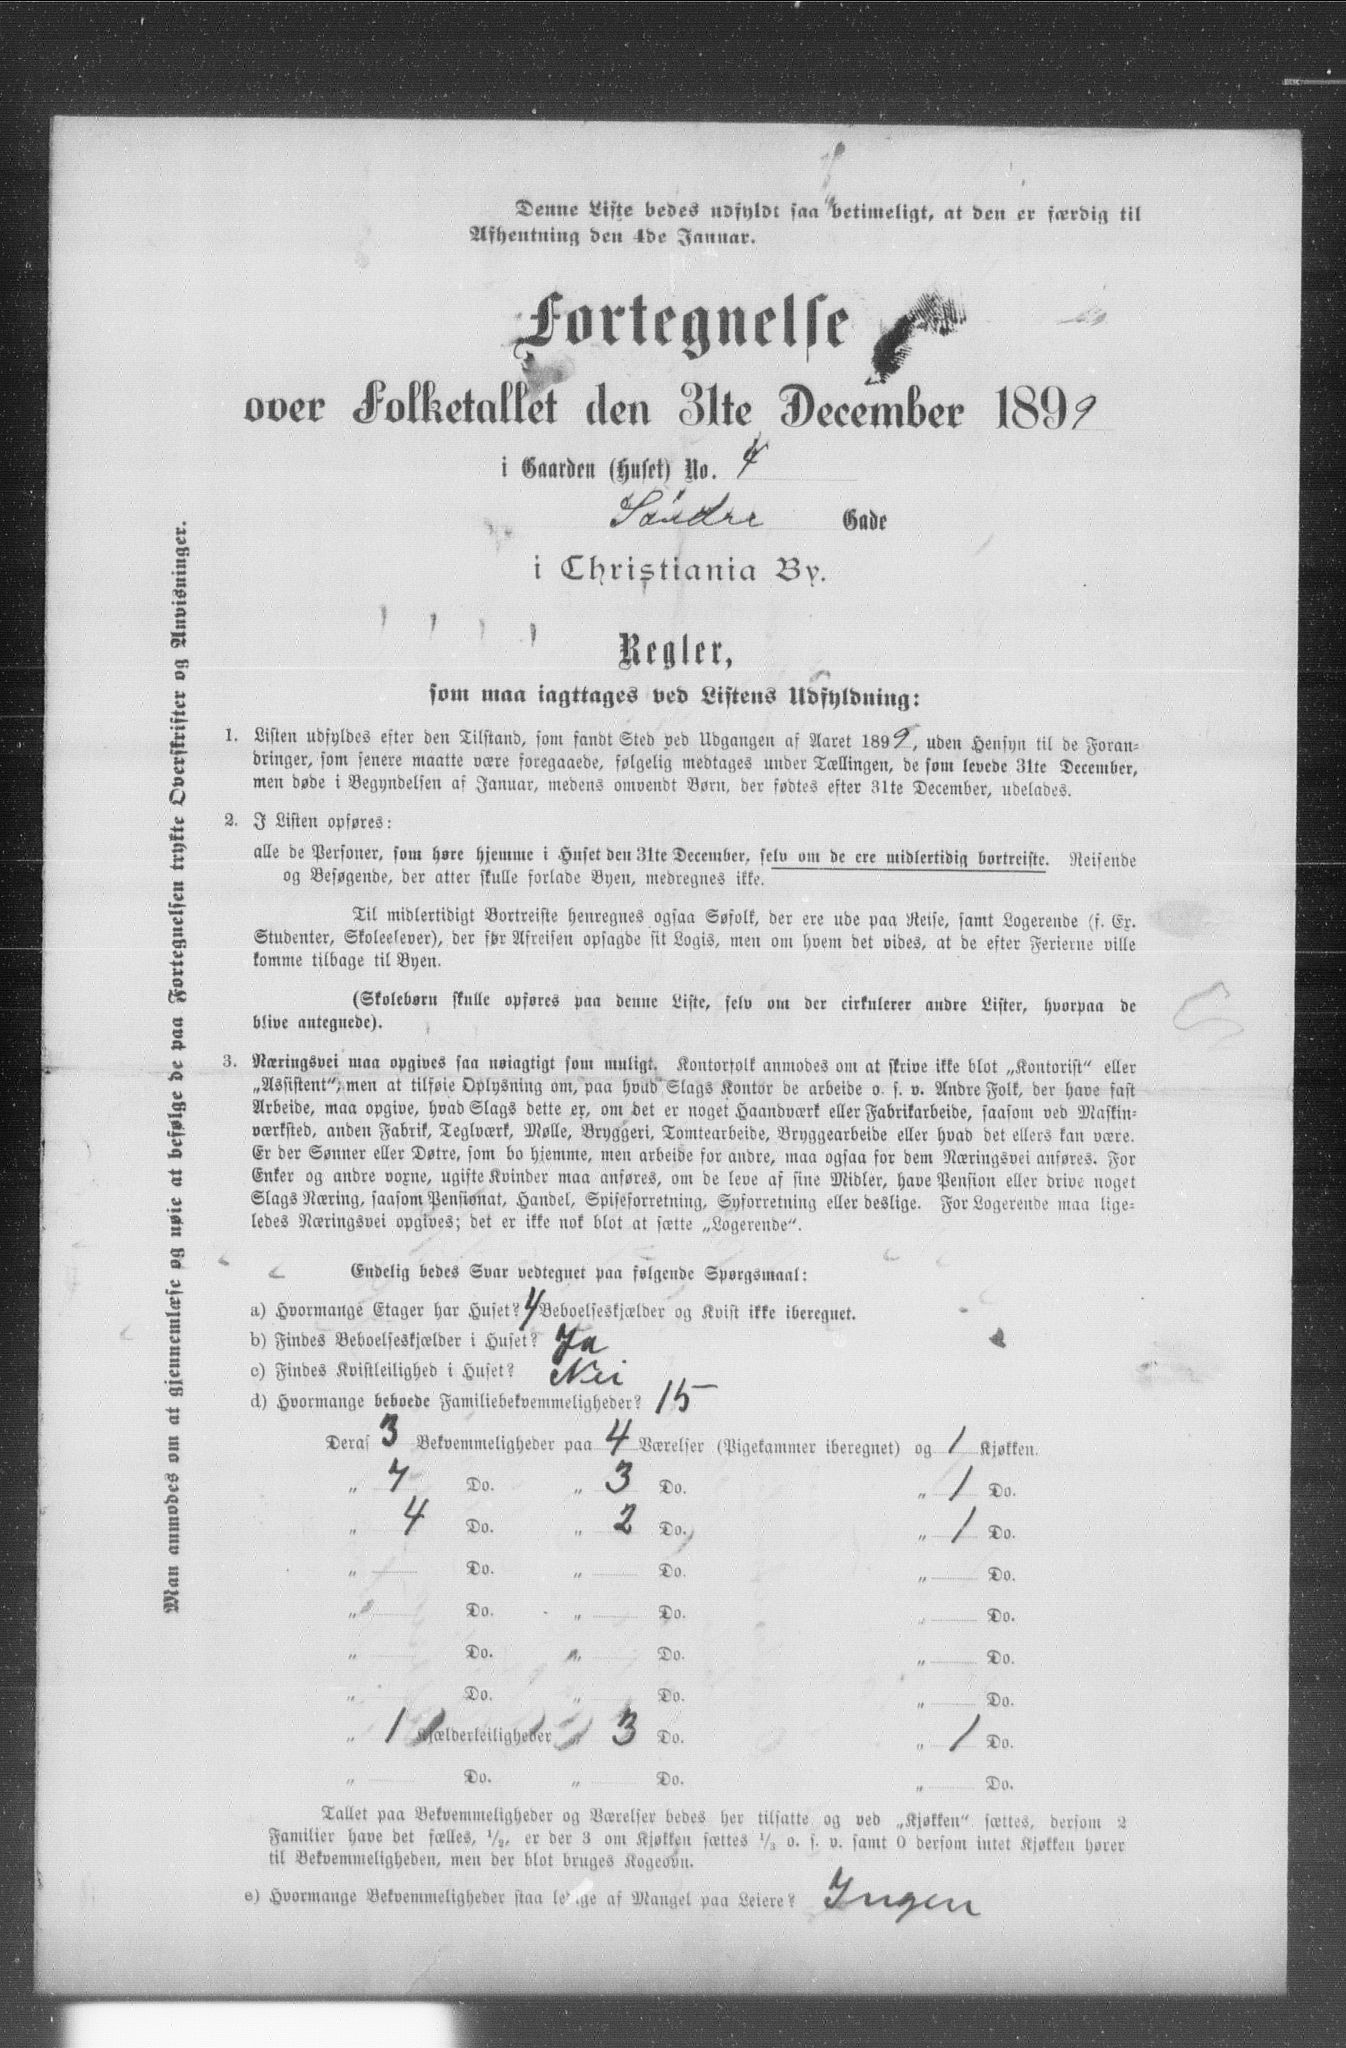 Denne Liste bedes udfyldt saa betimeligt, at den er færdig til
Afhentning den 4de Januar.
Fortegnelse
over Folketallet den 31te December 1899
i Gaarden (Huset) No. 4
Søndre Gade
i Christiania By.
Regler,
som maa iagttages ved Listens Udfyldning:
1. Listen udfyldes efter den Tilstand, som fandt Sted ved Udgangen af Aaret 1899, uden Hensyn til de Foran-
dringer, som senere maatte være foregaaede, følgelig medtages under Tællingen, de som levede 31te December,
men døde i Begyndelsen af Januar, medens omvendt Børn, der fødtes efter 31te December, udelades.
2. I Listen opføres:
alle de Personer, som høre hjemme i Huset den 31te December, selv om de ere midlertidig bortreiste. Reisende
og Besøgende, der atter skulle forlade Byen, medregnes ikke.
Til midlertidigt Bortreiste henregnes ogsaa Søfolk, der ere ude paa Reise, samt Logerende (f. Ex.
Studenter, Skoleelever), der før Afreisen opsagde sit Logis, men om hvem det vides, at de efter Ferierne ville
komme tilbage til Byen.
(Skolebørn skulle opføres paa denne Liste, selv om der cirkulerer andre Lister, hvorpaa de
blive antegnede).
3. Næringsvei maa opgives saa nøiagtigt som muligt. Kontorfolk anmodes om at skrive ikke blot „Kontorist“ eller
„Assistent“, men at tilføie Oplysning om, paa hvad Slags Kontor de arbeide o. s. v. Andre Folk, der have fast
Arbeide, maa opgive, hvad Slags dette er, om det er noget Haandværk eller Fabrikarbeide, saasom ved Maskin-
værksted, anden Fabrik, Teglværk, Mølle, Bryggeri, Tomtearbeide, Bryggearbeide eller hvad det ellers kan være.
Er der Sønner eller Døtre, som bo hjemme, men arbeide for andre, maa ogsaa for dem Næringsvei anføres. For
Enker og andre voxne, ugifte Kvinder maa anføres, om de leve af sine Midler, have Pension eller drive noget
Slags Næring, saasom Pensionat, Handel, Spiseforretning, Syforretning eller deslige. For Logerende maa lige-
ledes Næringsvei opgives; det er ikke nok blot at sætte „Logerende“.
Endelig bedes Svar vedtegnet paa følgende Spørgsmaal:
a) Hvormange Etager har Huset? 4 Beboelseskjælder og Kvist ikke iberegnet.
b) Findes Beboelseskjælder i Huset? Ja
c) Findes Kvistleilighed i Huset? Nei
d) Hvormange beboede Familiebekvemmeligheder? 15
Deraf 3 Bekvemmeligheder paa 4 Værelser (Pigekammer iberegnet) og 1 Kjøkken.
„ 7 Do. „ 3 Do. „ 1 Do.
„ 4 Do. „ 2 Do. „ 1 Do.
„ Do. „ Do. „ Do.
„ Do. „ Do. „ Do.
„ Do. „ Do. „ Do.
„ Do. „ Do. „ Do.
„ 1 Kjælderleiligheder „ 3 Do. „ 1 Do.
„ Do. „ Do. „ Do.
Tallet paa Bekvemmeligheder og Værelser bedes her tilsatte og ved „Kjøkken“ sættes, dersom 2
Familier have det fælles, 1/2, er der 3 om Kjøkken sættes 1/3 o. s. v. samt 0 dersom intet Kjøkken hører
til Bekvemmeligheden, men der blot bruges Kogeovn.
e) Hvormange Bekvemmeligheder staa ledige af Mangel paa Leiere? Ingen
Man anmodes om at gjennemlæse og nøie at befølge de paa Fortegnelsen trykte Overskrifter og Anvisninger.